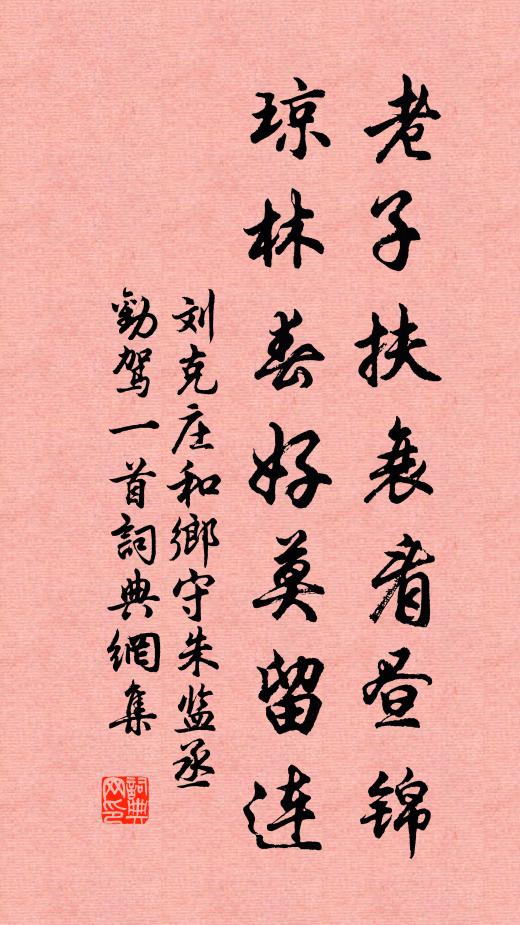 老子扶衰看昼锦
琼林春好莫留连
刘克庄和鄉守朱监丞
勸驾一首詞典網集
詞典网印